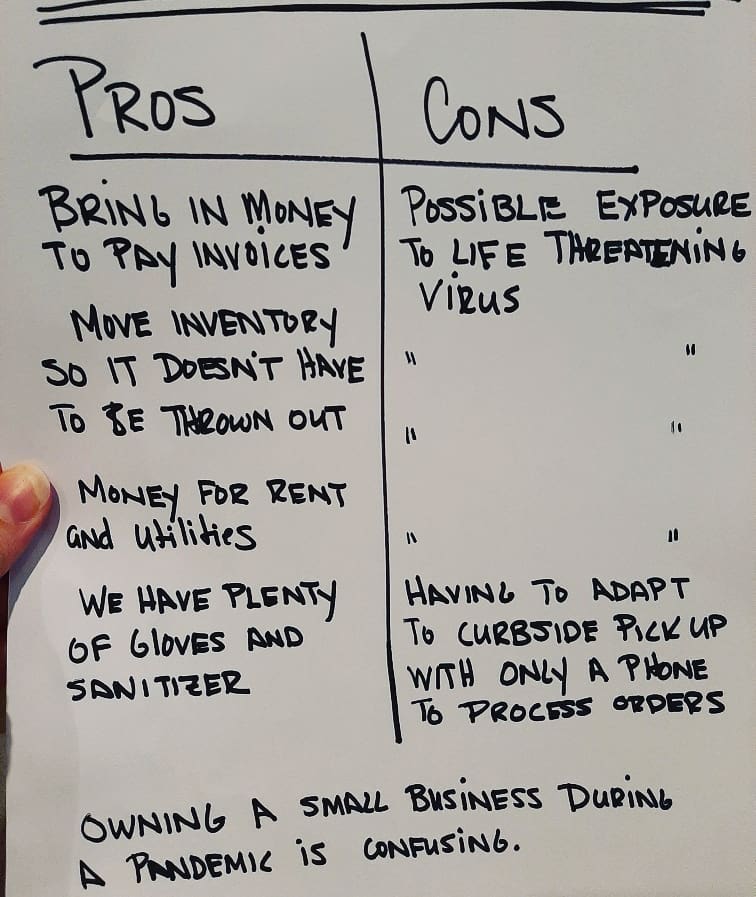 PROS
CONS
BRING IN MONEY
TO PAY INVOICES
MOVE INVENTORY
SO IT DOESN'T HAVE
TO BE THROWN OUT
MONEY FOR RENT
and utilities
WE HAVE PLENTY
OF GlOVES AND
SANITIZER
POSSiBLE EXPOSURE
TO LIFE THREATENiNG
ViRUS
" "
" "
" "
HAVING TO ADAPT
TO CURBSIDE PiCK UP
WITH ONLY A PHONE
TO PROCESS ORDERS
OWNING A SMALL BUSiNESS DURiNG
A PANDEMIC iS CONFUSiNG.